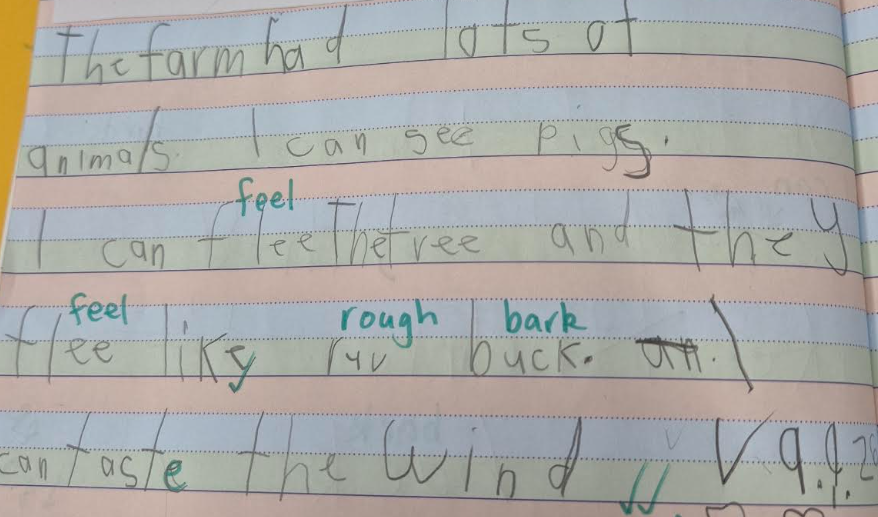 The farm had lots of
animals. I can see pigs.
feel
I can flee The tree and they
feel rough bark
flee liky ruv buck. an. I
can taste the wind V 9.9.20